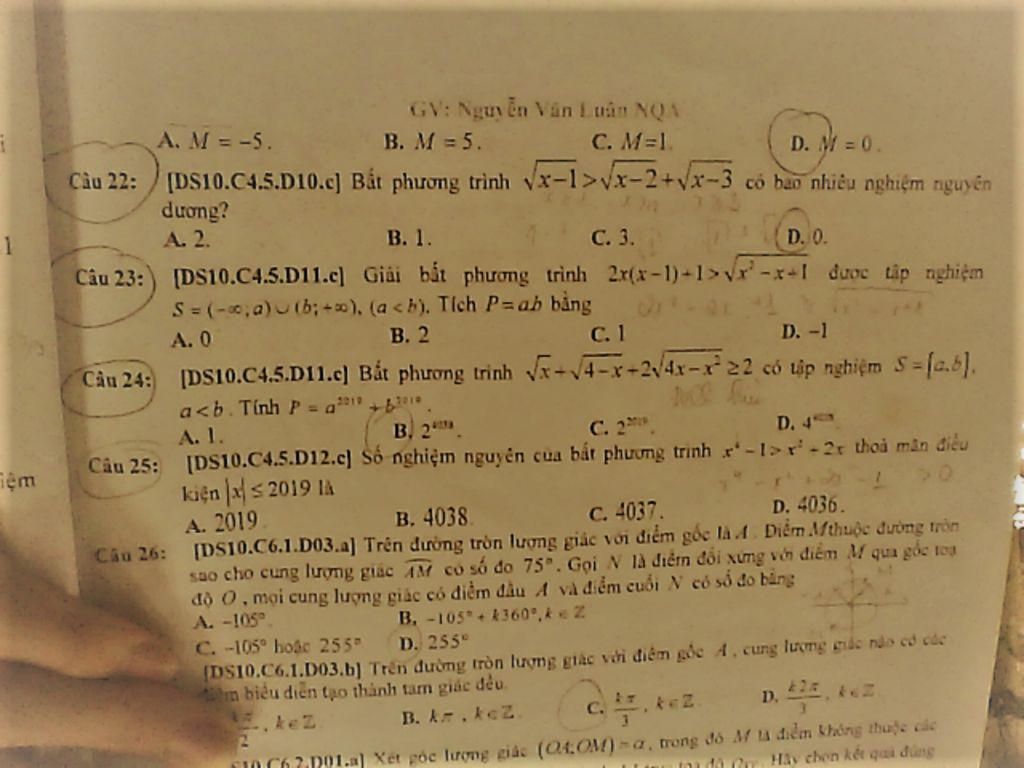 GV: Nguyễn Văn Luân NQA
A. M = -5. B. M = 5. C. M=1. D. M = 0.
Câu 22: [DS10.C4.5.D10.c] Bất phương trình √(x-1) > √(x-2) + √(x-3) có bao nhiêu nghiệm nguyên
dương?
A. 2. B. 1. C. 3. D. 0.
Câu 23: [DS10.C4.5.D11.c] Giải bất phương trình 2x(x-1)+1 > √(x²-x+1) được tập nghiệm
S = (-∞;a)∪(b;+∞), (a<b). Tích P=ab bằng
A. 0 B. 2 C. 1 D. -1
Câu 24: [DS10.C4.5.D11.c] Bất phương trình √x + √(4-x) + 2√(4x-x²) ≥ 2 có tập nghiệm S = [a,b],
a<b. Tính P = a²⁰¹⁹ + b²⁰¹⁹.
A. 1. B. 2⁴⁰³⁸. C. 2²⁰¹⁹. D.
Câu 25: [DS10.C4.5.D12.c] Số nghiệm nguyên của bất phương trình x⁴-1 > x²+2x thoả mãn điều
kiện |x| ≤ 2019 là
A. 2019 B. 4038. C. 4037. D. 4036.
Câu 26: [DS10.C6.1.D03.a] Trên đường tròn lượng giác với điểm gốc là A. Điểm M thuộc đường tròn
sao cho cung lượng giác AM có số đo 75°. Gọi N là điểm đối xứng với điểm M qua gốc toạ
độ O, mọi cung lượng giác có điểm đầu A và điểm cuối N có số đo bằng
A. -105°. B. -105° + k360°, k∈Z
C. -105° hoặc 255° D. 255°
[DS10.C6.1.D03.b] Trên đường tròn lượng giác với điểm gốc A, cung lượng giác nào có các
biểu diễn tạo thành tam giác đều.
kπ/2, k∈Z B. kπ, k∈Z. C. kπ/3, k∈Z D. k2π/3, k∈Z
S10.C6.2.D01.a] Xét góc lượng giác (OA;OM) = α, trong đó M là điểm không thuộc các
Oxy. Hãy chọn kết quả đúng